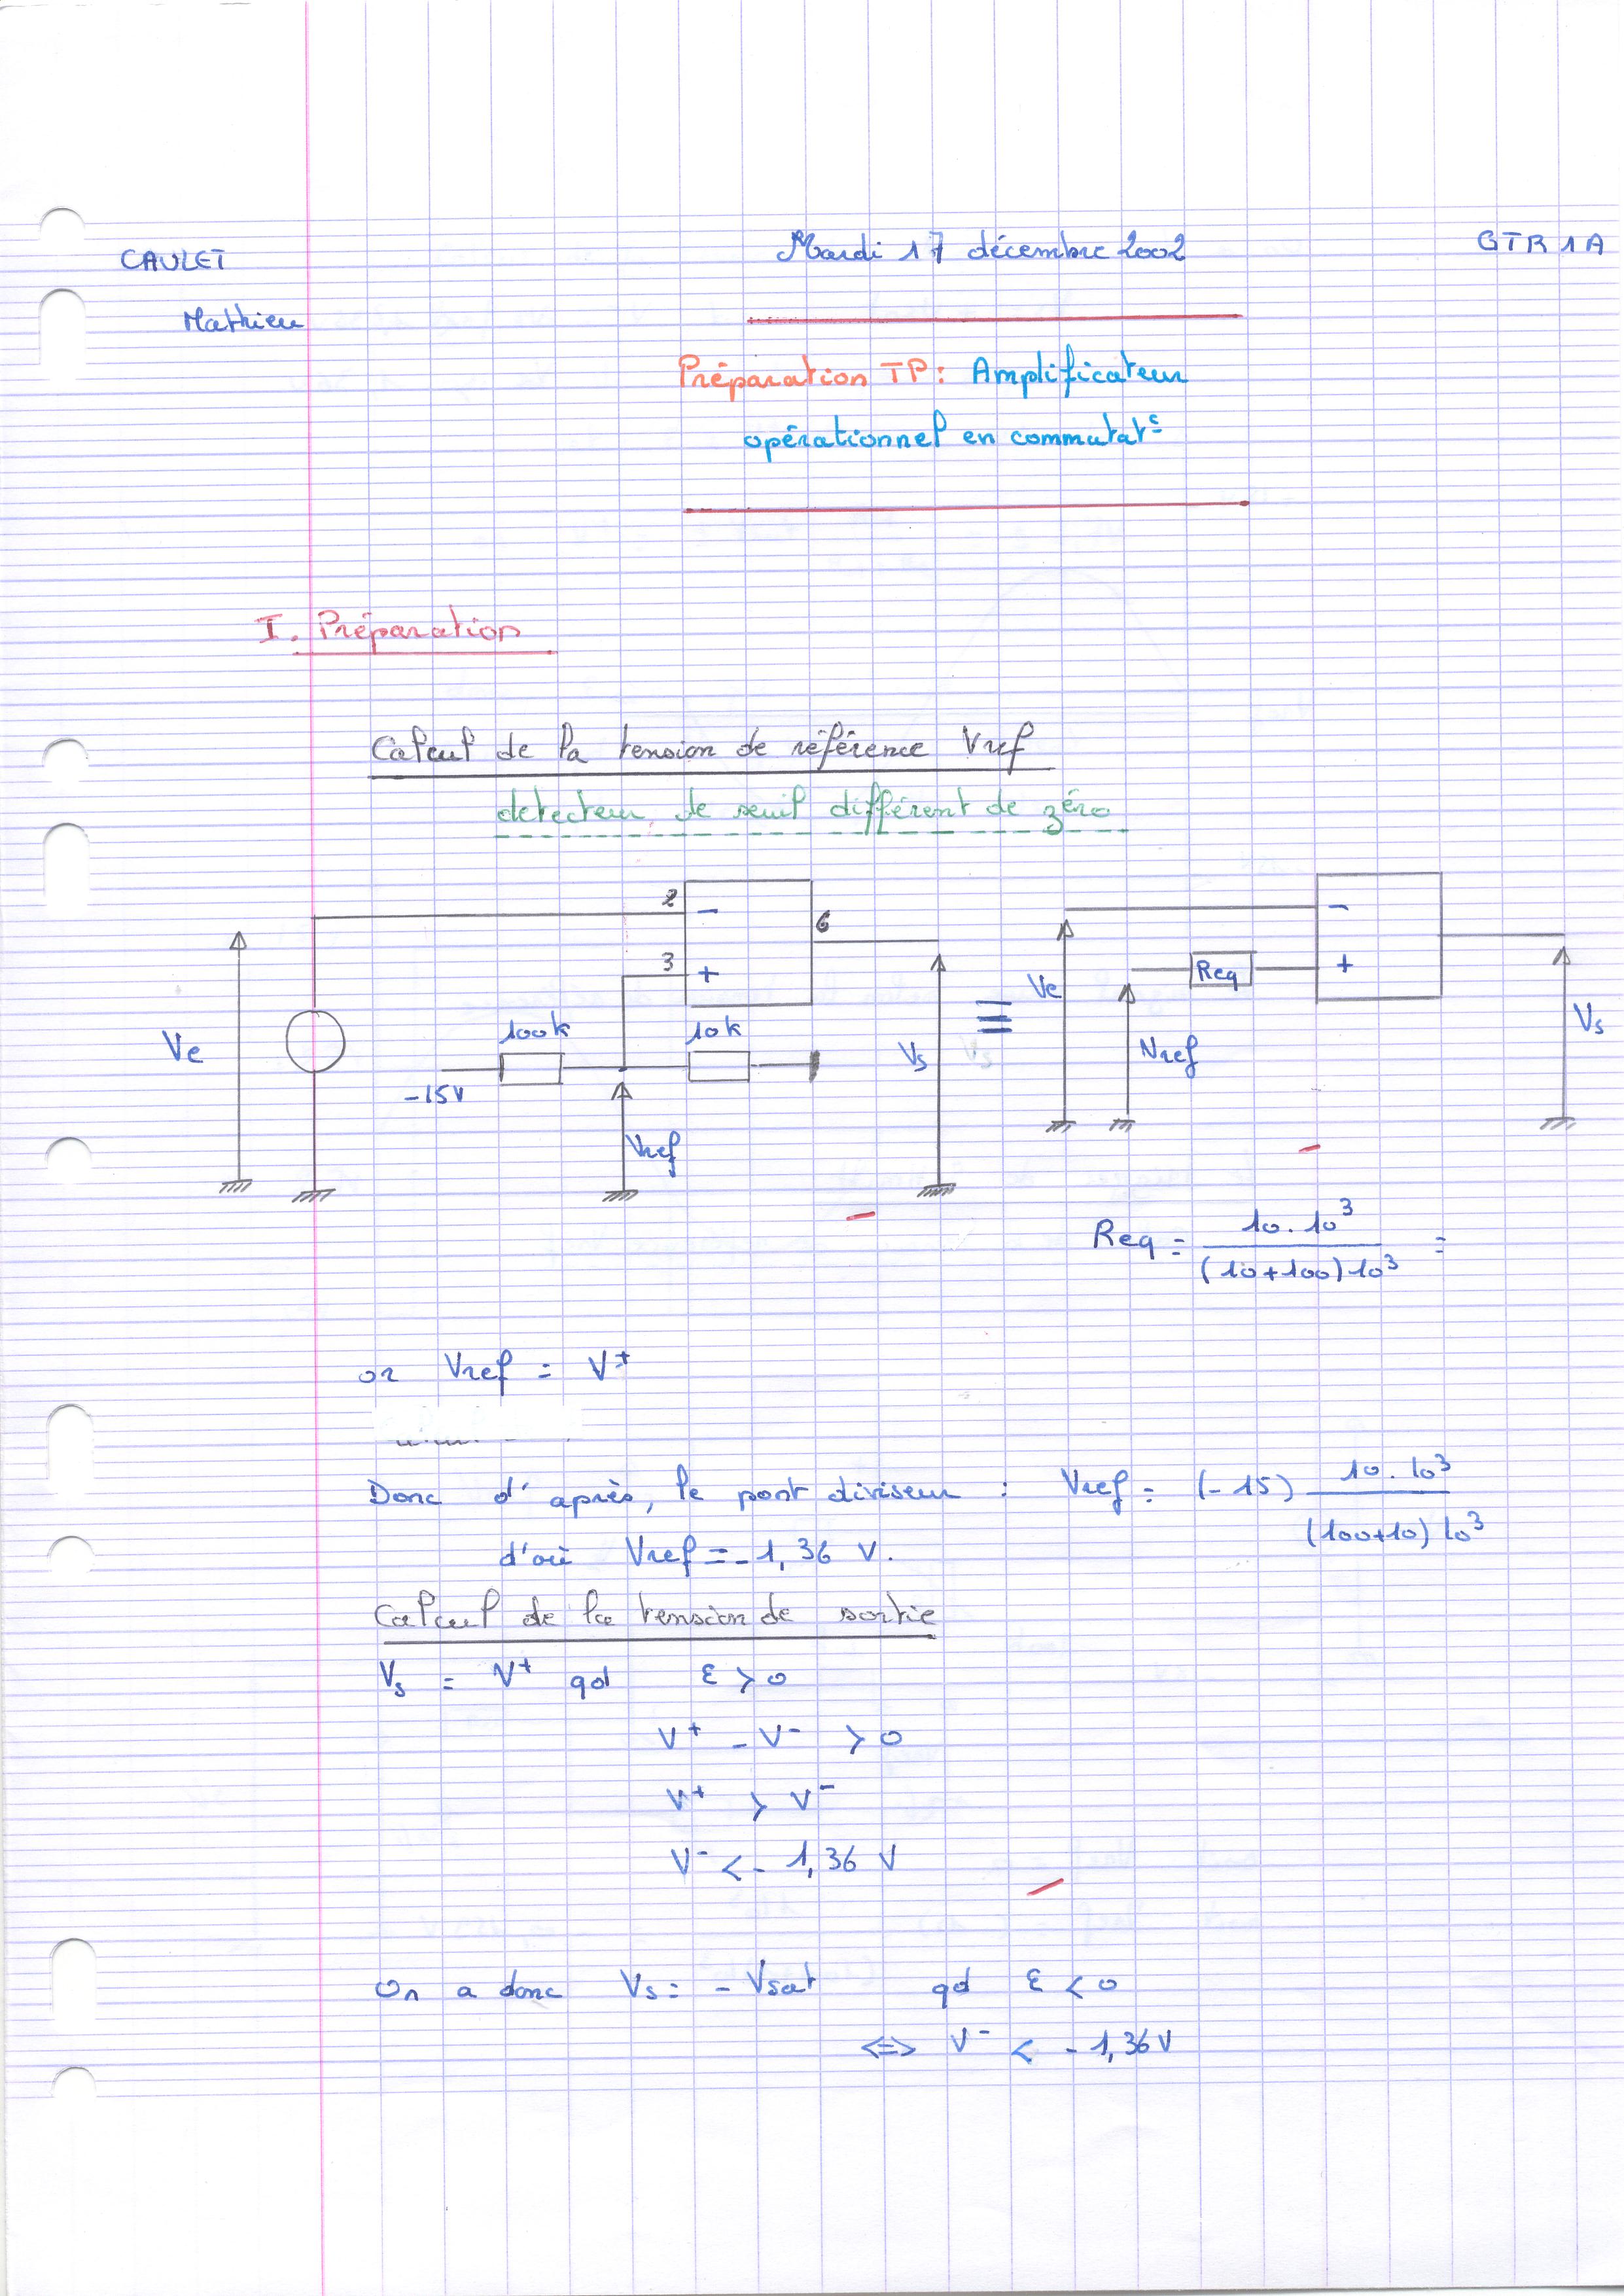 CAULET
Mardi 17 décembre 2002
GTR 1A
Mathieu
Préparation TP : Amplificateur
opérationnel en commutat°
I. Préparation
Calcul de la tension de référence Vref
detecteur de seuil différent de zéro
2
-
6
3
+
100k
10k
Ve
-15V
Vref
Vs
≡
Ve
-
Req
+
Vref
Vs
Req = 10.10³ / (10+100)10³ =
or Vref = V+
Donc d'après, le pont diviseur : Vref = (-15) 10.10³ / (100+10)10³
d'où Vref = -1,36 V.
Calcul de la tension de sortie
Vs = V+ qd ε > 0
V+ - V- > 0
V+ > V-
V- < -1,36 V
On a donc Vs = -Vsat qd ε < 0
<=> V- < -1,36V